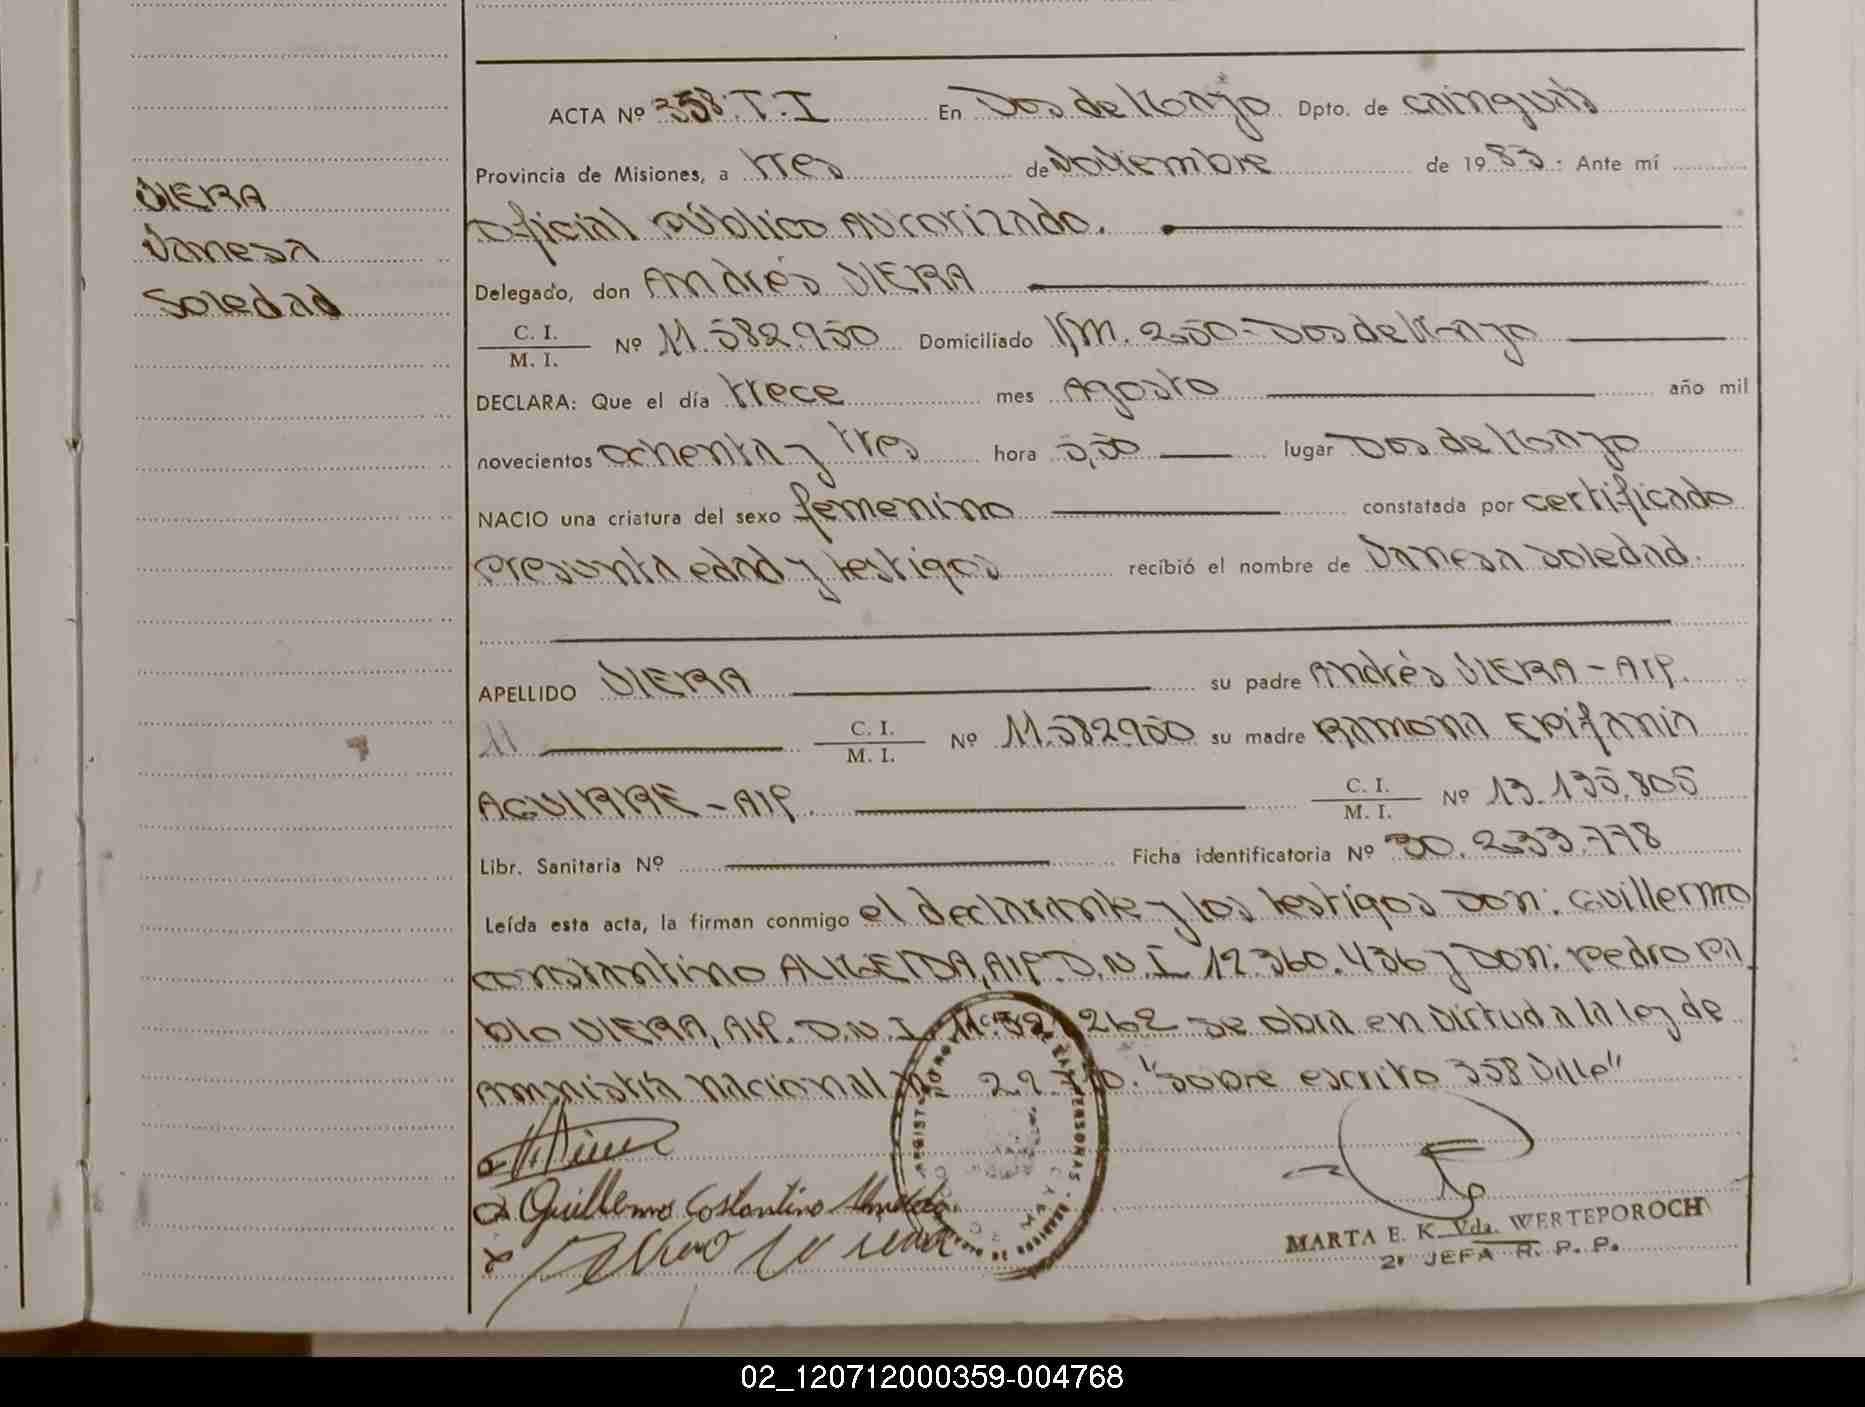 VIERA
Vanesa
Soledad
ACTA Nº 358.T.I En Dos de Mayo Dpto. de cainguás
Provincia de Misiones, a tres de Noviembre de 1983: Ante mí
Oficial Público Autorizado.
Delegado, don Andrés VIERA
C. I.
M. I. Nº 11.582.950 Domiciliado Km. 250-Dos de Mayo
DECLARA: Que el día trece mes Agosto año mil
novecientos ochenta y tres hora 5,50 lugar Dos de Mayo
NACIO una criatura del sexo femenino constatada por certificado
presunta edad y testigos recibió el nombre de Vanesa Soledad.
APELLIDO VIERA su padre Andrés VIERA - Arg.
C. I.
M. I. Nº 11.582.950 su madre Ramona Epifania
AGUIRRE - Arg. C. I.
M. I. Nº 13.135.805
Libr. Sanitaria Nº Ficha identificatoria Nº 30.233.778
Leída esta acta, la firman conmigo el declarante y los testigos Don: Guillermo
constantino ALMEIDA, Arg. D.N.I. 12.360.436 y Don: Pedro Pa
blo VIERA, Arg. D.N.I. 262 se obra en virtud a la ley de
Amnistía nacional "Sobre escrito 358 Vale"
Guillermo Costantino Almeida
MARTA E. K. Vda. WERTEPOROCH
2º JEFA R. P. P.
02_120712000359-004768